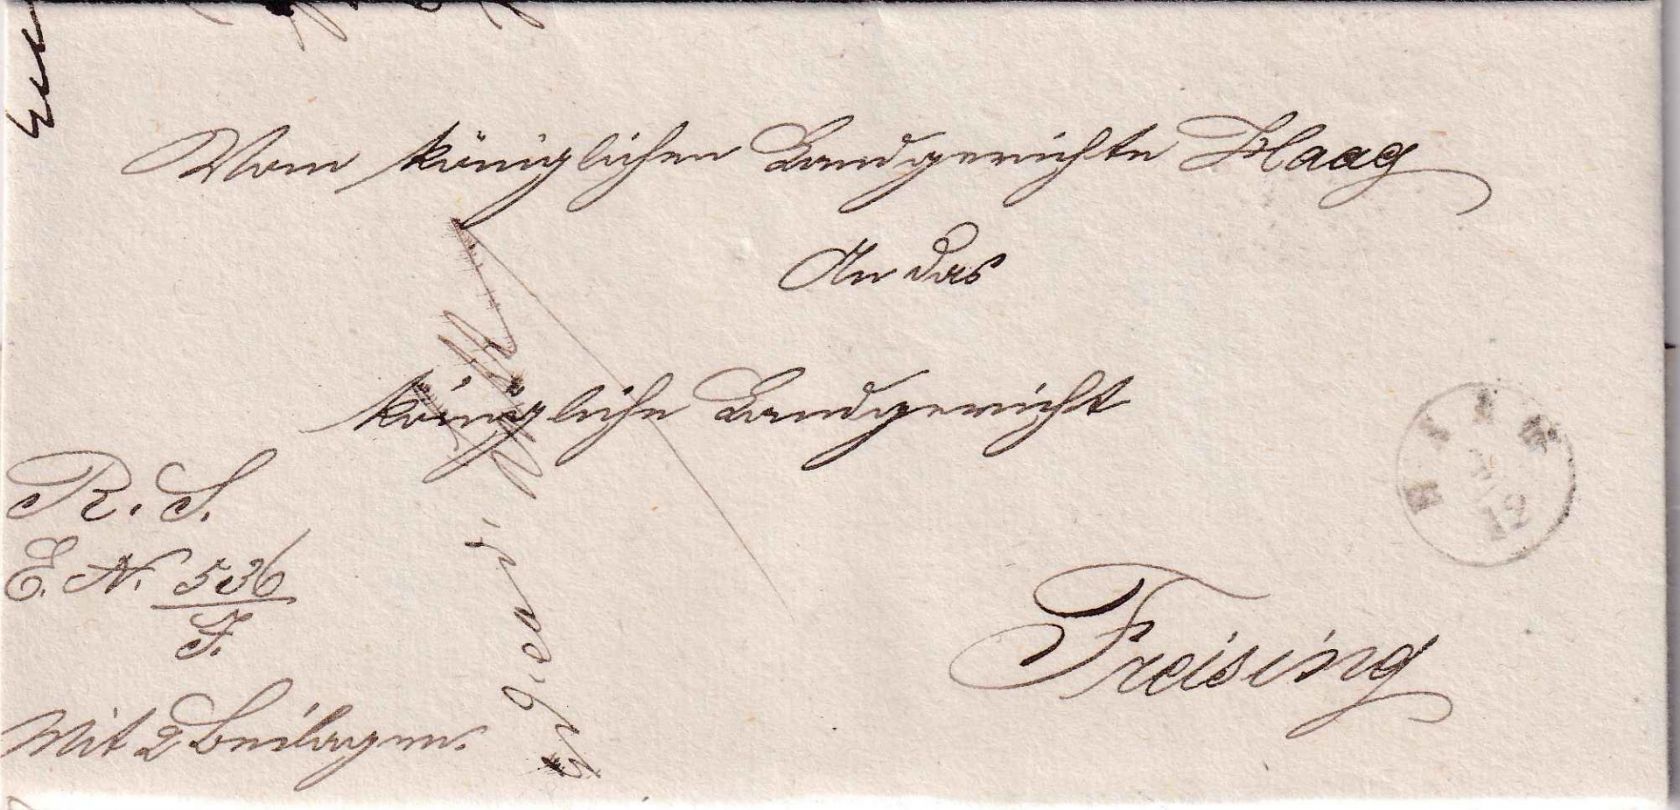 Vom königlichen Landgerichte Haag
An das
königliche Landgericht
R. S.
E. N. 536
F.
Mit 2 Beilagen.
Freising
HAAG
12